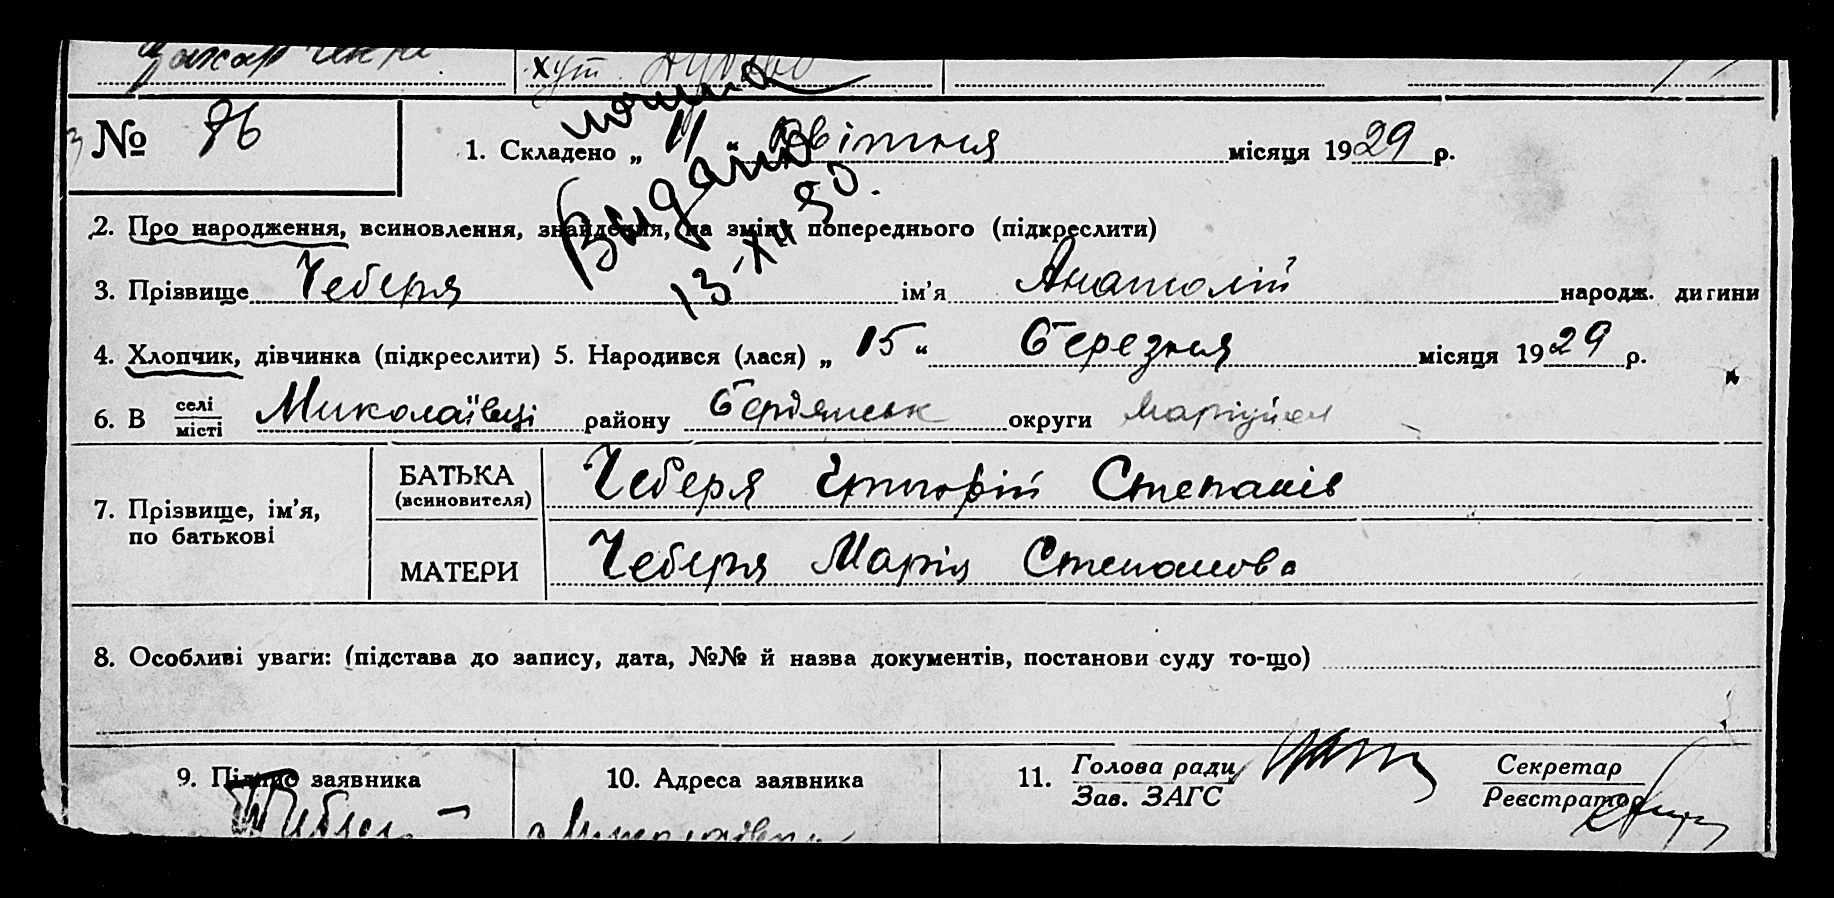 хут.
№ 76
1. Складено „ 11 “ Квітня місяця 1929 р.
2. Про народження, всиновлення, знайдення, на зміну попереднього (підкреслити)
Видано
13-XII 50.
3. Прізвище Чеберя ім’я Анатолій народж. дитини
4. Хлопчик, дівчинка (підкреслити) 5. Народився (лася) „ 15 “ березня місяця 1929 р.
6. В селі місті Миколаївці району Бердянськ округи Маріупол
7. Прізвище, ім’я, по батькові
БАТЬКА (всиновителя) Чеберя Григорій Степанів
МАТЕРИ Чеберя Марія Степанова
8. Особливі уваги: (підстава до запису, дата, №№ й назва документів, постанови суду то-що)
9. Підпис заявника
10. Адреса заявника
11. Голова ради Зав. ЗАГС
Секретар Реєстратор